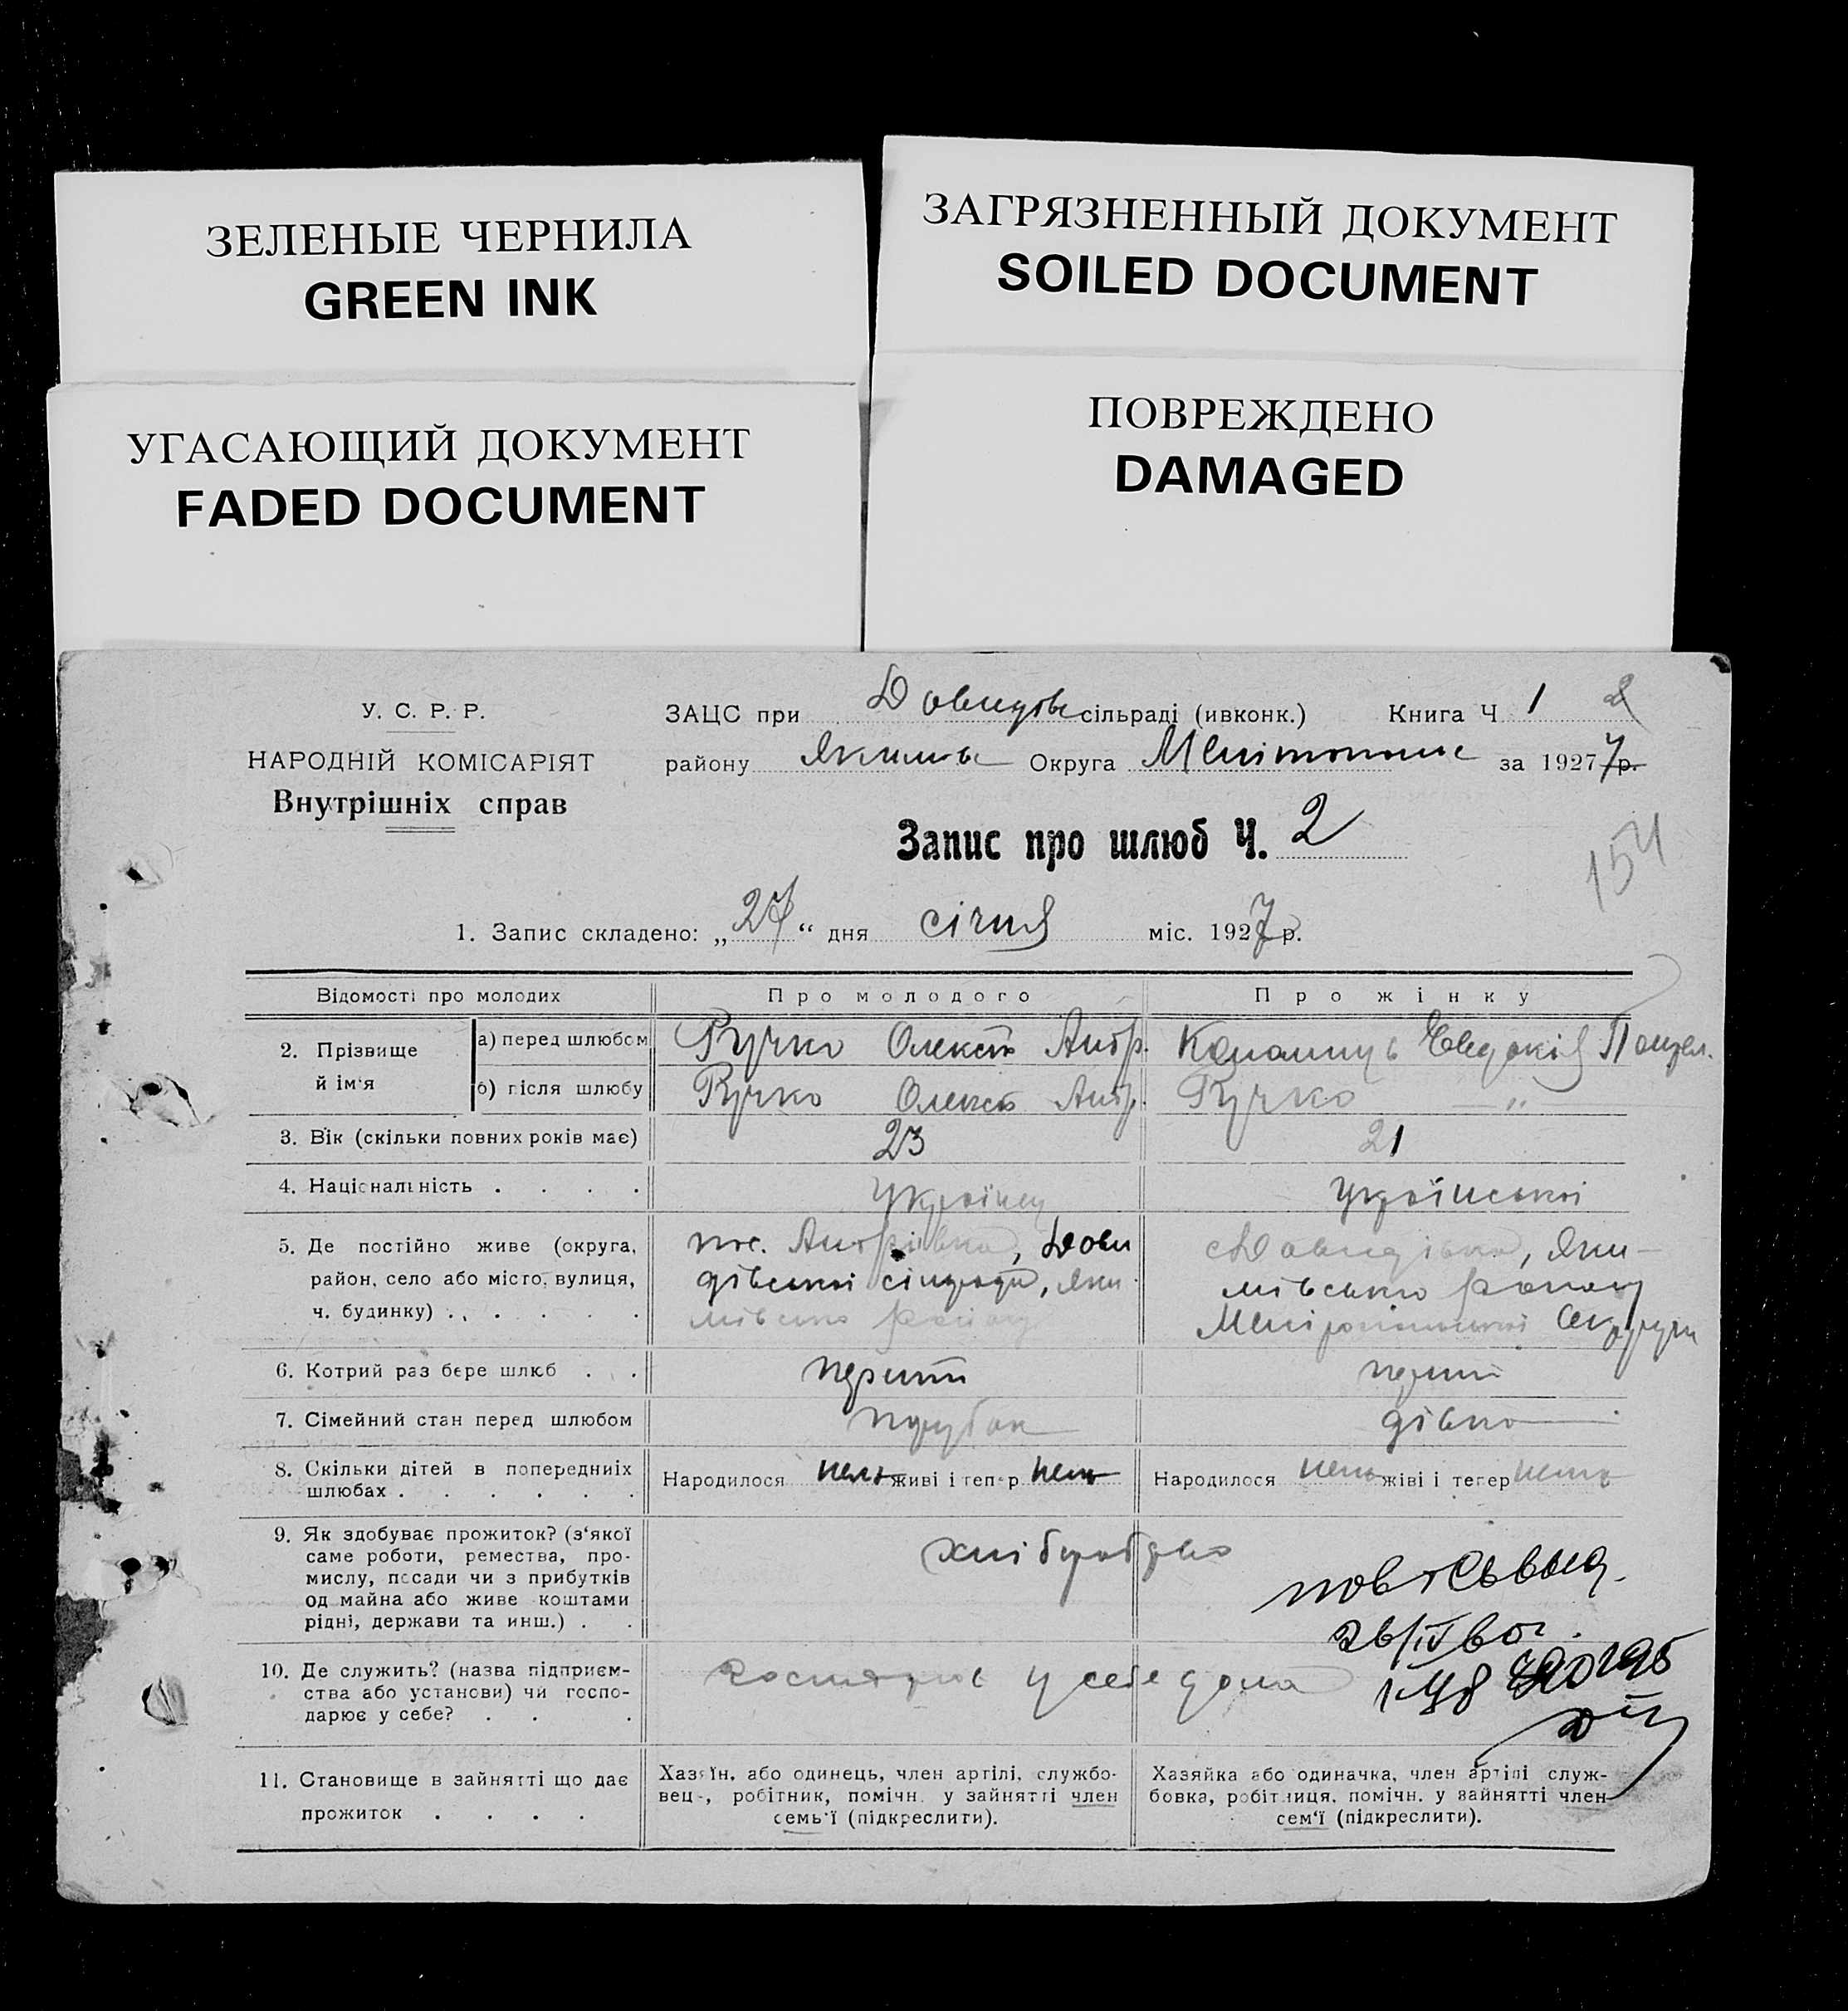 ЗЕЛЕНЫЕ ЧЕРНИЛА
GREEN INK
ЗАГРЯЗНЕННЫЙ ДОКУМЕНТ
SOILED DOCUMENT
УГАСАЮЩИЙ ДОКУМЕНТ
FADED DOCUMENT
ПОВРЕЖДЕНО
DAMAGED
У. С. Р. Р.
НАРОДНІЙ КОМІСАРІЯТ
Внутрішніх справ
ЗАЦС при Довидовс сільраді (ивконк.) Книга Ч 1
району Якимовс Округа Мелітопольс за 1927 7 р.
Запис про шлюб Ч. 2
154
1. Запис складено: „27“ дня січня міс. 1927 р.
Відомості про молодих Про молодого Про жінку
2. Прізвище й ім'я
а) перед шлюбом Ручко Олексій Андр. Евдокія
б) після шлюбу Ручко Олексій Андр. Ручко — „ —
3. Вік (скільки повних років має) 23 21
4. Національність . . . . Українец Української
5. Де постійно живе (округа, пос. Андріївка, Дови Давидівка, Яки-
район, село або місто, вулиця, дівської сільради, Яки- мівського району
ч. будинку) . . . . . . мівсько району Мелітопольської Округи
6. Котрий раз бере шлюб . . перший перший
7. Сімейний стан перед шлюбом парубок дівка
8. Скільки дітей в попередниіх Народилося нема живі і тепер нема Народилося нема жіві і тепер нема
шлюбах . . . . . .
9. Як здобуває прожиток? (з'якої хліборобство
саме роботи, ремества, про-
мислу, посади чи з прибутків
од майна або живе коштами
рідні, держави та инш.) . .
10. Де служить? (назва підприєм- у себе дома
ства або установи) чи господарює у себе? . . .
11. Становище в зайнятті що дає
прожиток . . . .
Хазяїн, або одинець, член артілі, службо-
вець, робітник, помічн. у зайнятті член
семь'ї (підкреслити).
Хазяйка або одиначка, член артілі служ-
бовка, робітниця, помічн. у зайнятті член
сем'ї (підкреслити).